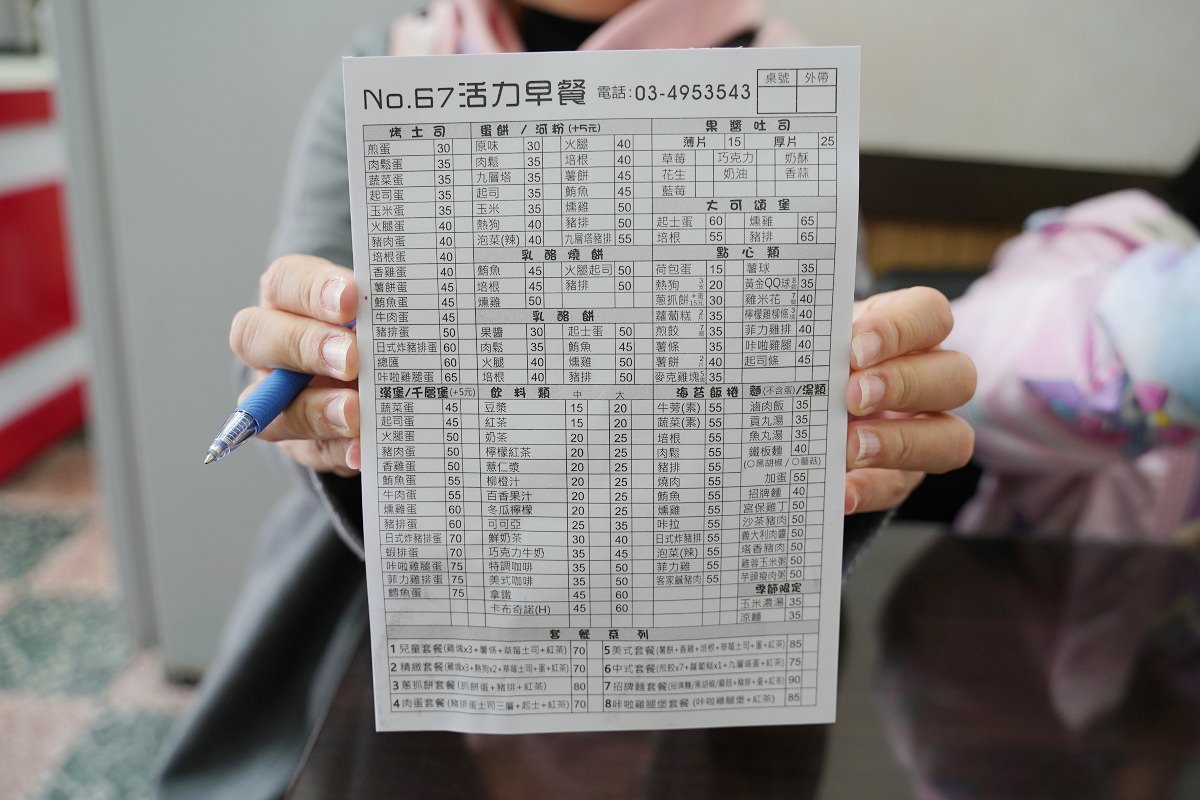 No.67活力早餐 電話:03-4953543 桌號 外帶
烤土司
煎蛋 30
肉鬆蛋 35
蔬菜蛋 35
起司蛋 35
玉米蛋 35
火腿蛋 40
豬肉蛋 40
培根蛋 40
香雞蛋 40
薯餅蛋 45
鮪魚蛋 45
牛肉蛋 45
豬排蛋 50
日式炸豬排蛋 60
總匯 60
咔啦雞腿蛋 65
蛋餅/河粉(+5元)
原味 30 火腿 40
肉鬆 35 培根 40
九層塔 35 薯餅 45
起司 35 鮪魚 45
玉米 35 燻雞 50
熱狗 40 豬排 50
泡菜(辣) 40 九層塔豬排 55
乳酪燒餅
鮪魚 45 火腿起司 50
培根 45 豬排 50
燻雞 50
乳酪餅
果醬 30 起士蛋 50
肉鬆 35 鮪魚 45
火腿 40 燻雞 50
培根 40 豬排 50
果醬吐司
薄片 15 厚片 25
草莓 巧克力 奶酥
花生 奶油 香蒜
藍莓
大可頌堡
起士蛋 60 燻雞 65
培根 55 豬排 65
點心類
荷包蛋 15 薯球 35
熱狗 20 黃金QQ球 35
蔥抓餅 +蛋15元 30 雞米花 40
蘿蔔糕 35 檸檬雞柳條 40
煎餃 35 菲力雞排 40
薯條 35 咔啦雞腿 40
薯餅 40 起司條 45
麥克雞塊 35
漢堡/千層堡(+5元)
蔬菜蛋 45
起司蛋 45
火腿蛋 50
豬肉蛋 50
香雞蛋 50
鮪魚蛋 55
牛肉蛋 55
燻雞蛋 60
豬排蛋 60
日式炸豬排蛋 70
蝦排蛋 70
咔啦雞腿蛋 75
菲力雞排蛋 75
鱈魚蛋 75
飲料類 中 大
豆漿 15 20
紅茶 15 20
奶茶 20 25
檸檬紅茶 20 25
薏仁漿 20 25
柳橙汁 20 25
百香果汁 20 25
冬瓜檸檬 20 25
可可亞 25 35
鮮奶茶 30 40
巧克力牛奶 35 45
特調咖啡 35 50
美式咖啡 35 50
拿鐵 45 60
卡布奇諾(H) 45 60
海苔飯捲
牛蒡(素) 55
蔬菜(素) 55
培根 55
肉鬆 55
豬排 55
燒肉 55
鮪魚 55
燻雞 55
咔拉 55
日式炸豬排 55
泡菜(辣) 55
菲力雞 55
客家鹹豬肉 55
麵(不含蛋)/湯類
滷肉飯 35
貢丸湯 35
魚丸湯 35
鐵板麵 40
(○黑胡椒/○蘑菇)
加蛋 55
招牌麵 40
宮保雞丁 50
沙茶豬肉 50
義大利肉醬 50
塔香豬肉 50
雞蓉玉米粥 50
芋頭瘦肉粥 50
季節限定
玉米濃湯 35
涼麵 35
套餐系列
1兒童套餐(雞塊x3+薯條+草莓土司+紅茶) 70
2精緻套餐(雞塊x3+熱狗x2+草莓土司+蛋+紅茶) 70
3蔥抓餅套餐(抓餅蛋+豬排+紅茶) 80
4肉蛋套餐(豬排蛋土司三層+起士+紅茶) 70
5美式套餐(薯餅+香雞+培根+草莓土司+蛋+紅茶) 85
6中式套餐(煎餃x7+蘿蔔糕x1+九層塔蛋+紅茶) 75
7招牌麵套餐(招牌麵/黑胡椒/蘑菇+豬排+蛋+紅茶) 90
8咔啦雞腿堡套餐(咔啦雞腿堡+紅茶) 85